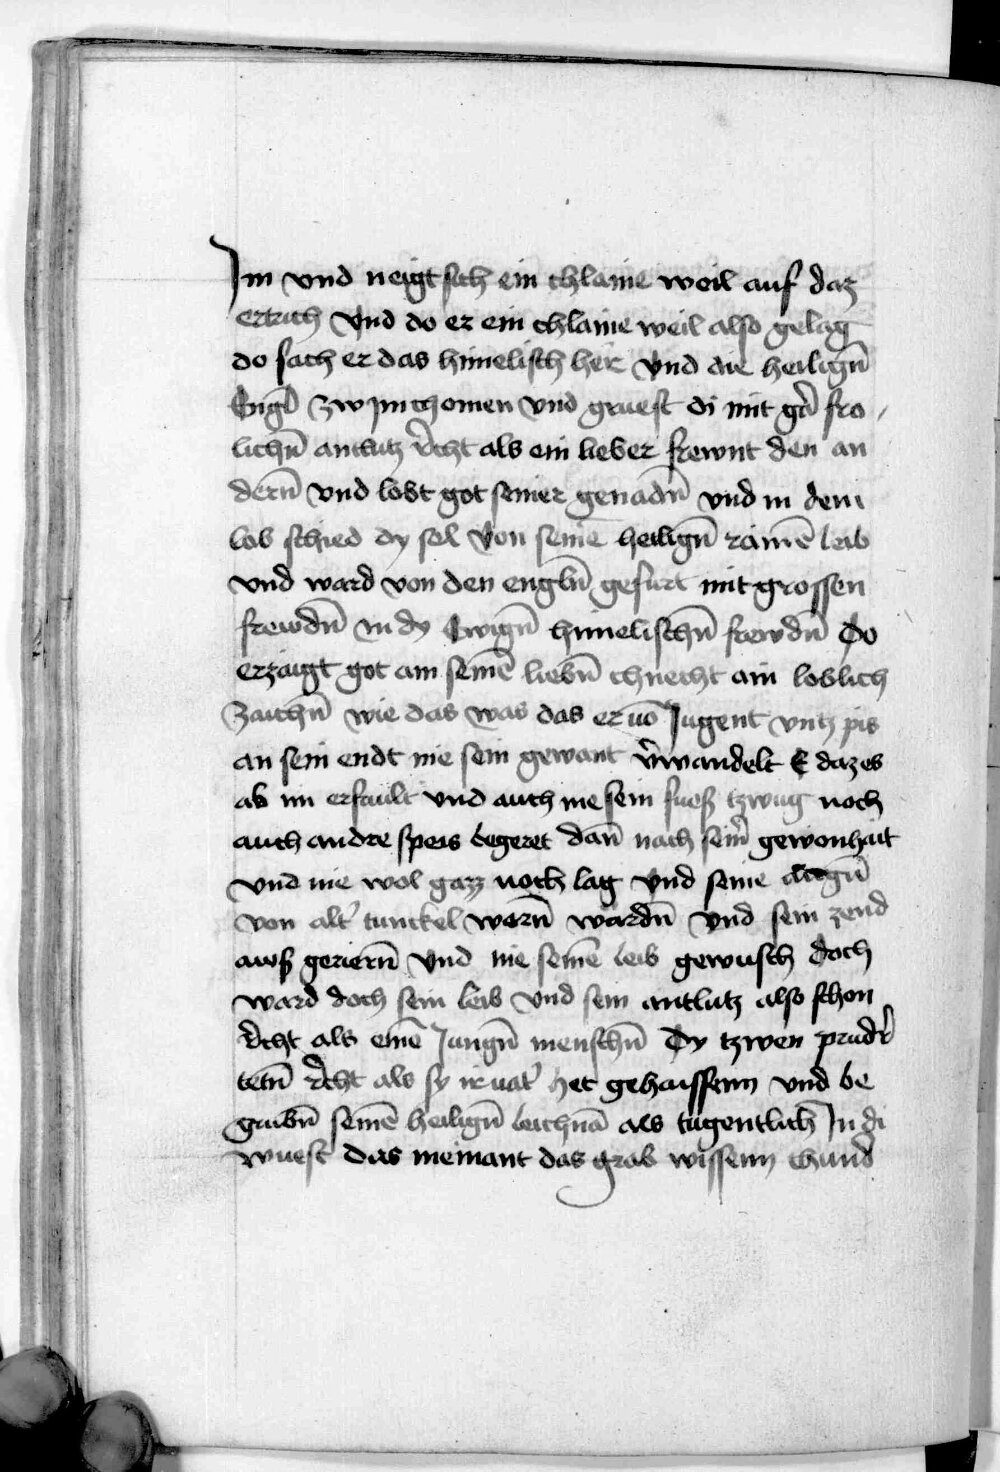 Im vnd neigt sich ein chlaine weil auf daz
ertrich Vnd do er ein chlaine weil also gelag
do sach er das himelisch her Vnd die heilign̄
Engl̄ zw im chomen vnd gruest di mit gr̄ fro
lichn̄ antlutz r̄cht als ein lieber frewnt den an
dern̄ vnd lobt got seiner genadn̄ vnd in dem
lob schied dy sel Von seinē heilign̄ rainē leib
vnd ward von den engln̄ gefurt mit grossen
frewdn̄ in dy Ewign̄ himelischn̄ frewdn̄ Do
erzaigt got am seinē liebn̄ chnecht ain loblich
zaichn̄ wie das was das er uō Jugent vntz pis
an sein endt nie sein gewant v̄wandelt E daz es
ab im erfault vnd auch nie sein fuess tzwug noch
auch andre speis begeret dan̄ nach sein̄ gewonhait
vnd nie wol gazz noch lag vnd seine augn̄
von alt̄ tunckel worn̄ wardn̄ vnd sein zend
aws geriern̄ Vnd nie seinē leib gewusch doch
ward doch sein leib vnd sein antlutz also schon
r̄cht als einē Jungn̄ menschn̄ Dy tzwen prudr̄
tetn̄ r̄cht als sy ir uat̄ het gehaissenn vnd be
grubn̄ seinē heilign̄ leichnā als tugentlich In di
wuest das niemant das grab wissenn chund